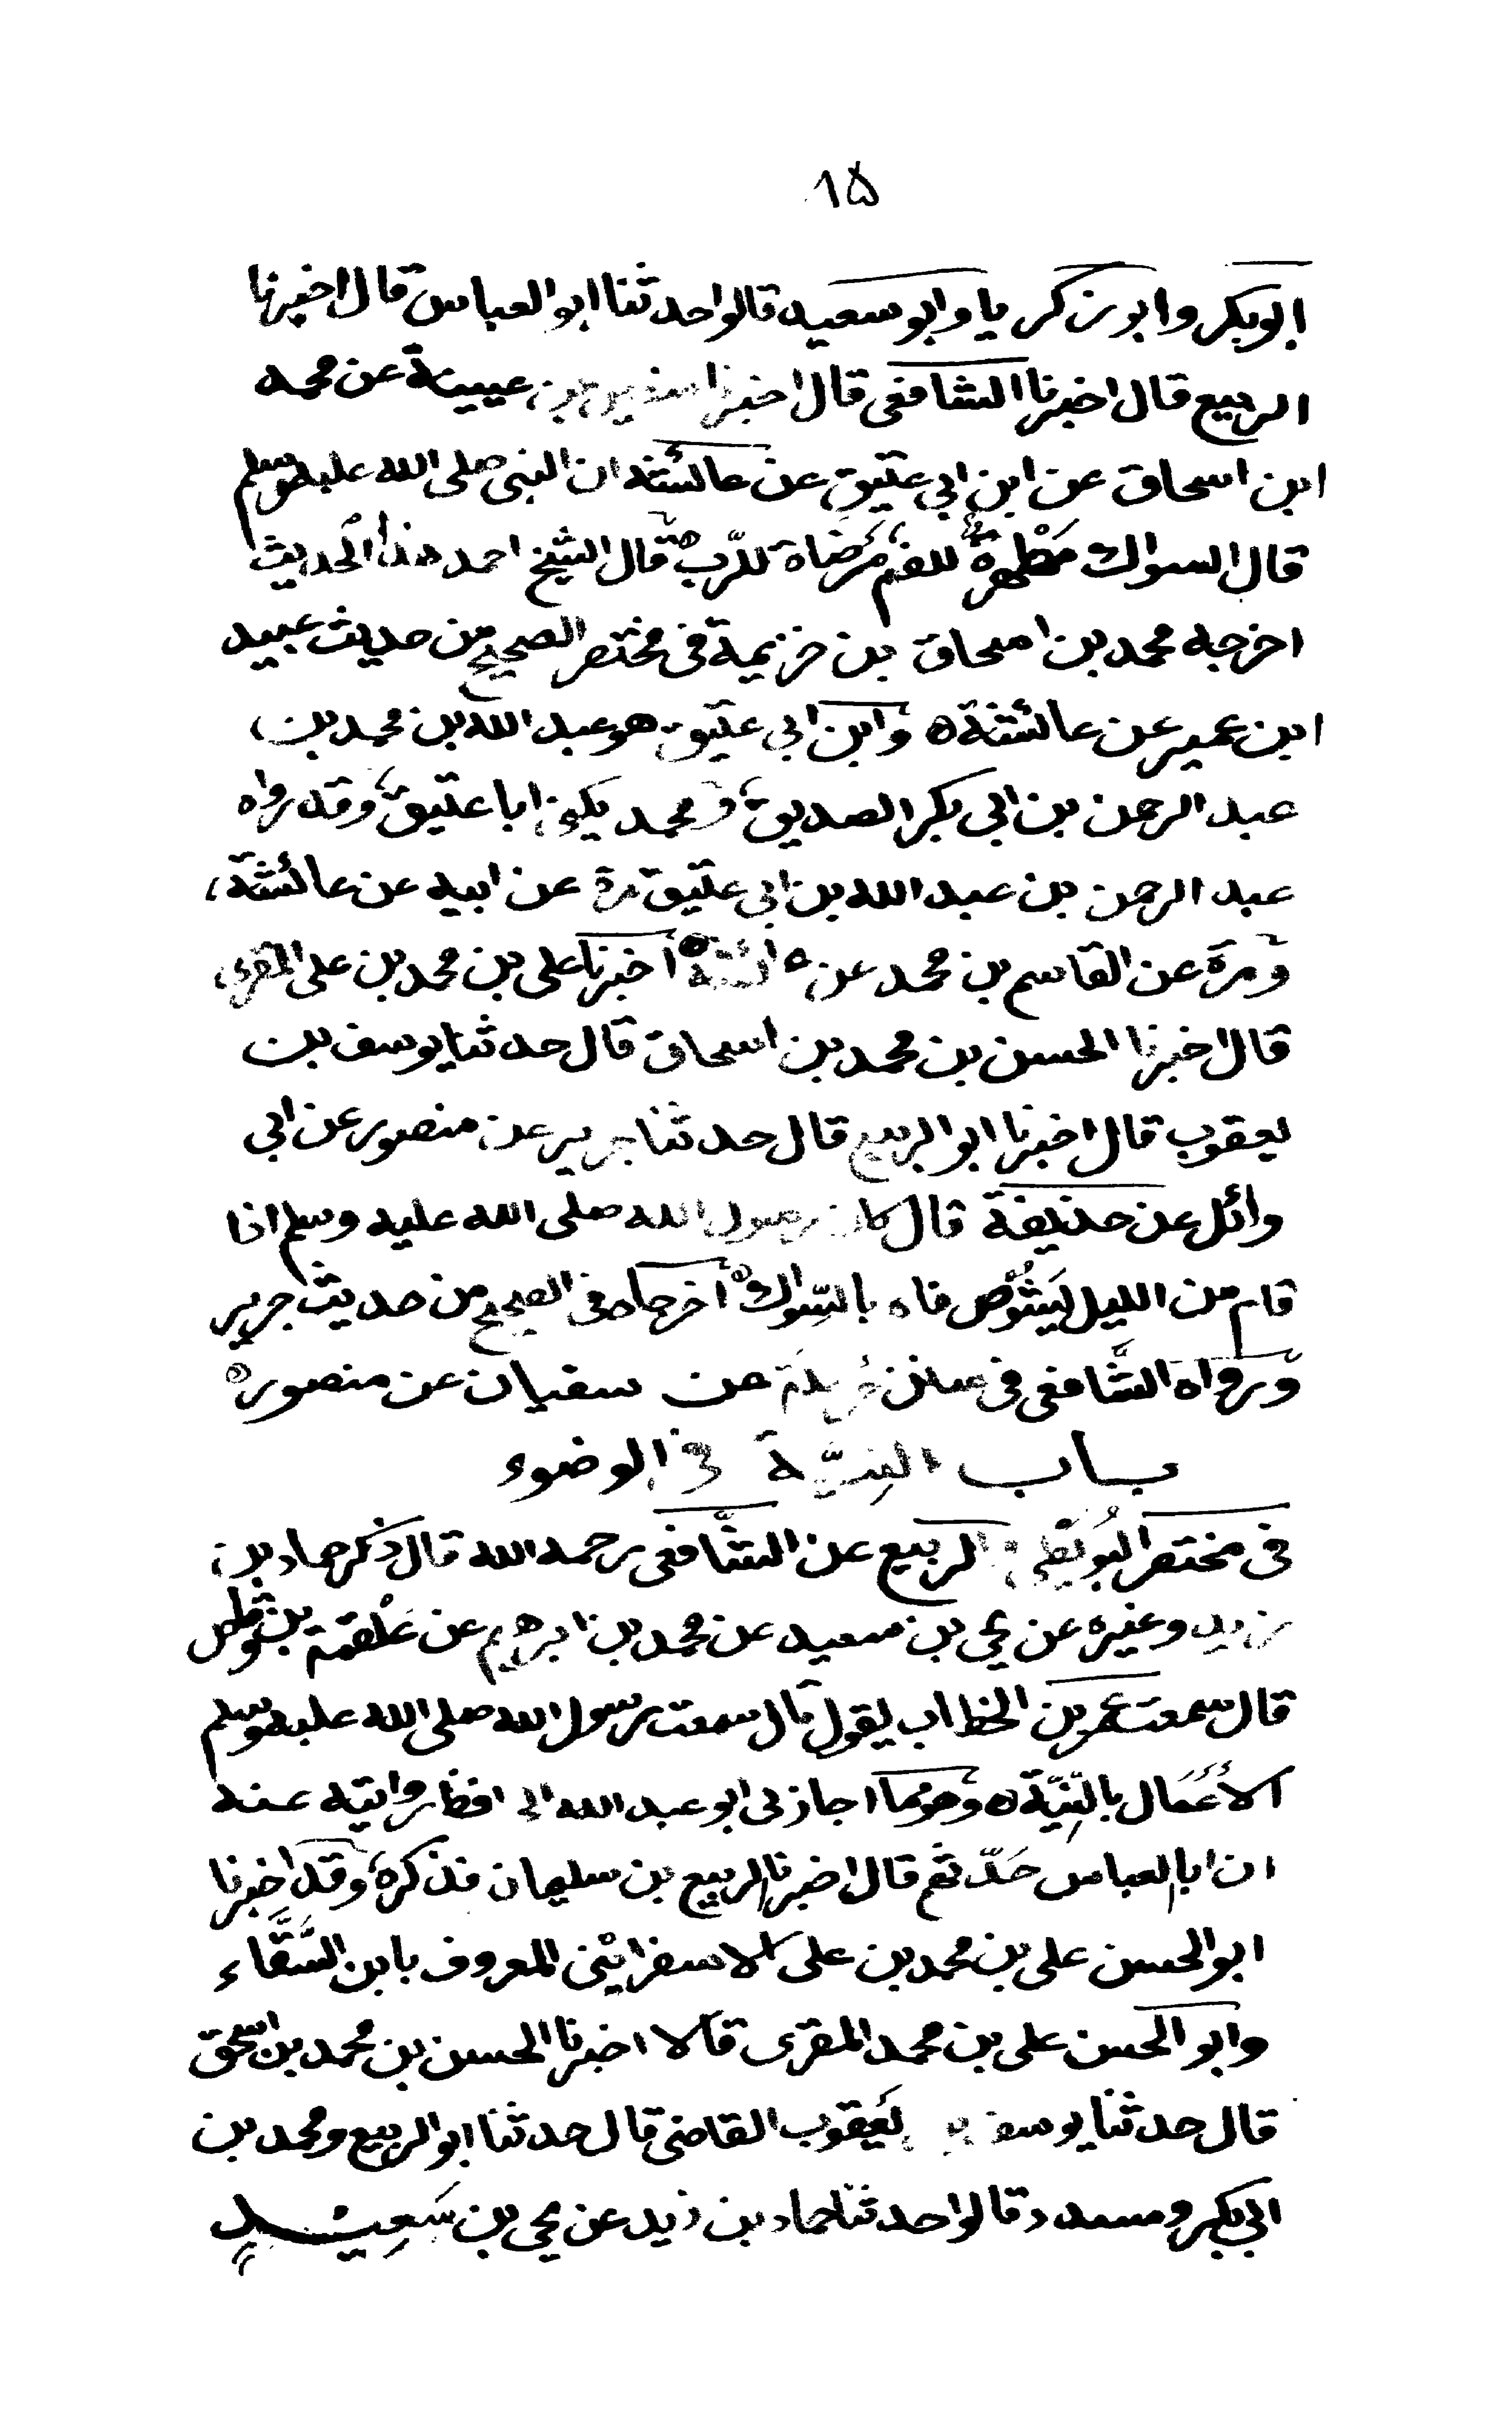 ١٥
ابو بكر وابو زكريا وابو سعيد قالوا حدثنا ابو العباس قال اخبرنا
الربيع قال اخبرنا الشافعى قال اخبرنا سفين بن عيينة عن محمد
ابن اسحاق عن ابن ابى عتيق عن عائشة ان النبى صلى الله عليه وسلم
قال السواك مَطْهرةٌ للفم مَرضاة للرّب ه قال الشيخ احمد هذا الحديث
اخرجه محمد بن اسحاق بن خزيمة فى مختصر الصحيح من حديث عبيد
ابن عمير عن عائشة ه وابن ابى عتيق هو عبد الله بن محمد بن
عبد الرحمن بن ابى بكر الصديق، ومحمد يكنى ابا عتيق، وقد رواه
عبد الرحمن بن عبد الله بن ابى عتيق مرة عن ابيه عن عائشة،
ومرة عن القاسم بن محمد عن عائشة ه أخبرنا على بن محمد بن على المقرى
قال اخبرنا الحسن بن محمد بن اسحاق قال حدثنا يوسف بن
يعقوب قال اخبرنا ابو الربيع قال حدثنا جرير عن منصور عن ابى
وائل عن حذيفة قال كان رسول الله صلى الله عليه وسلم اذا
قام من الليل يَشُوْص فاه بالسِّواك ه أخرجاه فى الصحيح من حديث جرير
ورواه الشَّافعى فى سنن حرملة عن سفيان عن منصور ه
باب النِيَّة فى الوضوء
فى مختصر البُوَيْطى والربيع عن الشَّافعى رحمه الله قال ذكر حماد بن
زيد وغيره عن يحي بن سعيد عن محمد بن ابرهيم عن عَلْقمة بن وقاص
قال سمعت عمر بن الخطاب يقول قال سمعت رسول الله صلى الله عليه وسلم
الأعْمَال بالنِّيَّة ه وهو مما اجاز لى ابو عبد الله الحافظ روايته عنه
ان ابا العباس حَدّثهم قال اخبرنا الربيع بن سليمان فذكره، وقد اخبرنا
ابو الحسن على بن محمد بن على الاسفرائنى المعروف بابن السَّقَّاء
وابو الحسن على بن محمد المقرى قالا اخبرنا الحسن بن محمد بن اسحق
قال حدثنا يوسف بن يَعقوب القاضى قال حدثنا ابو الربيع ومحمد بن
ابى بكر ومسدد قالوا حدثنا حماد بن زيد عن يحي بن سَعِيْدٍ